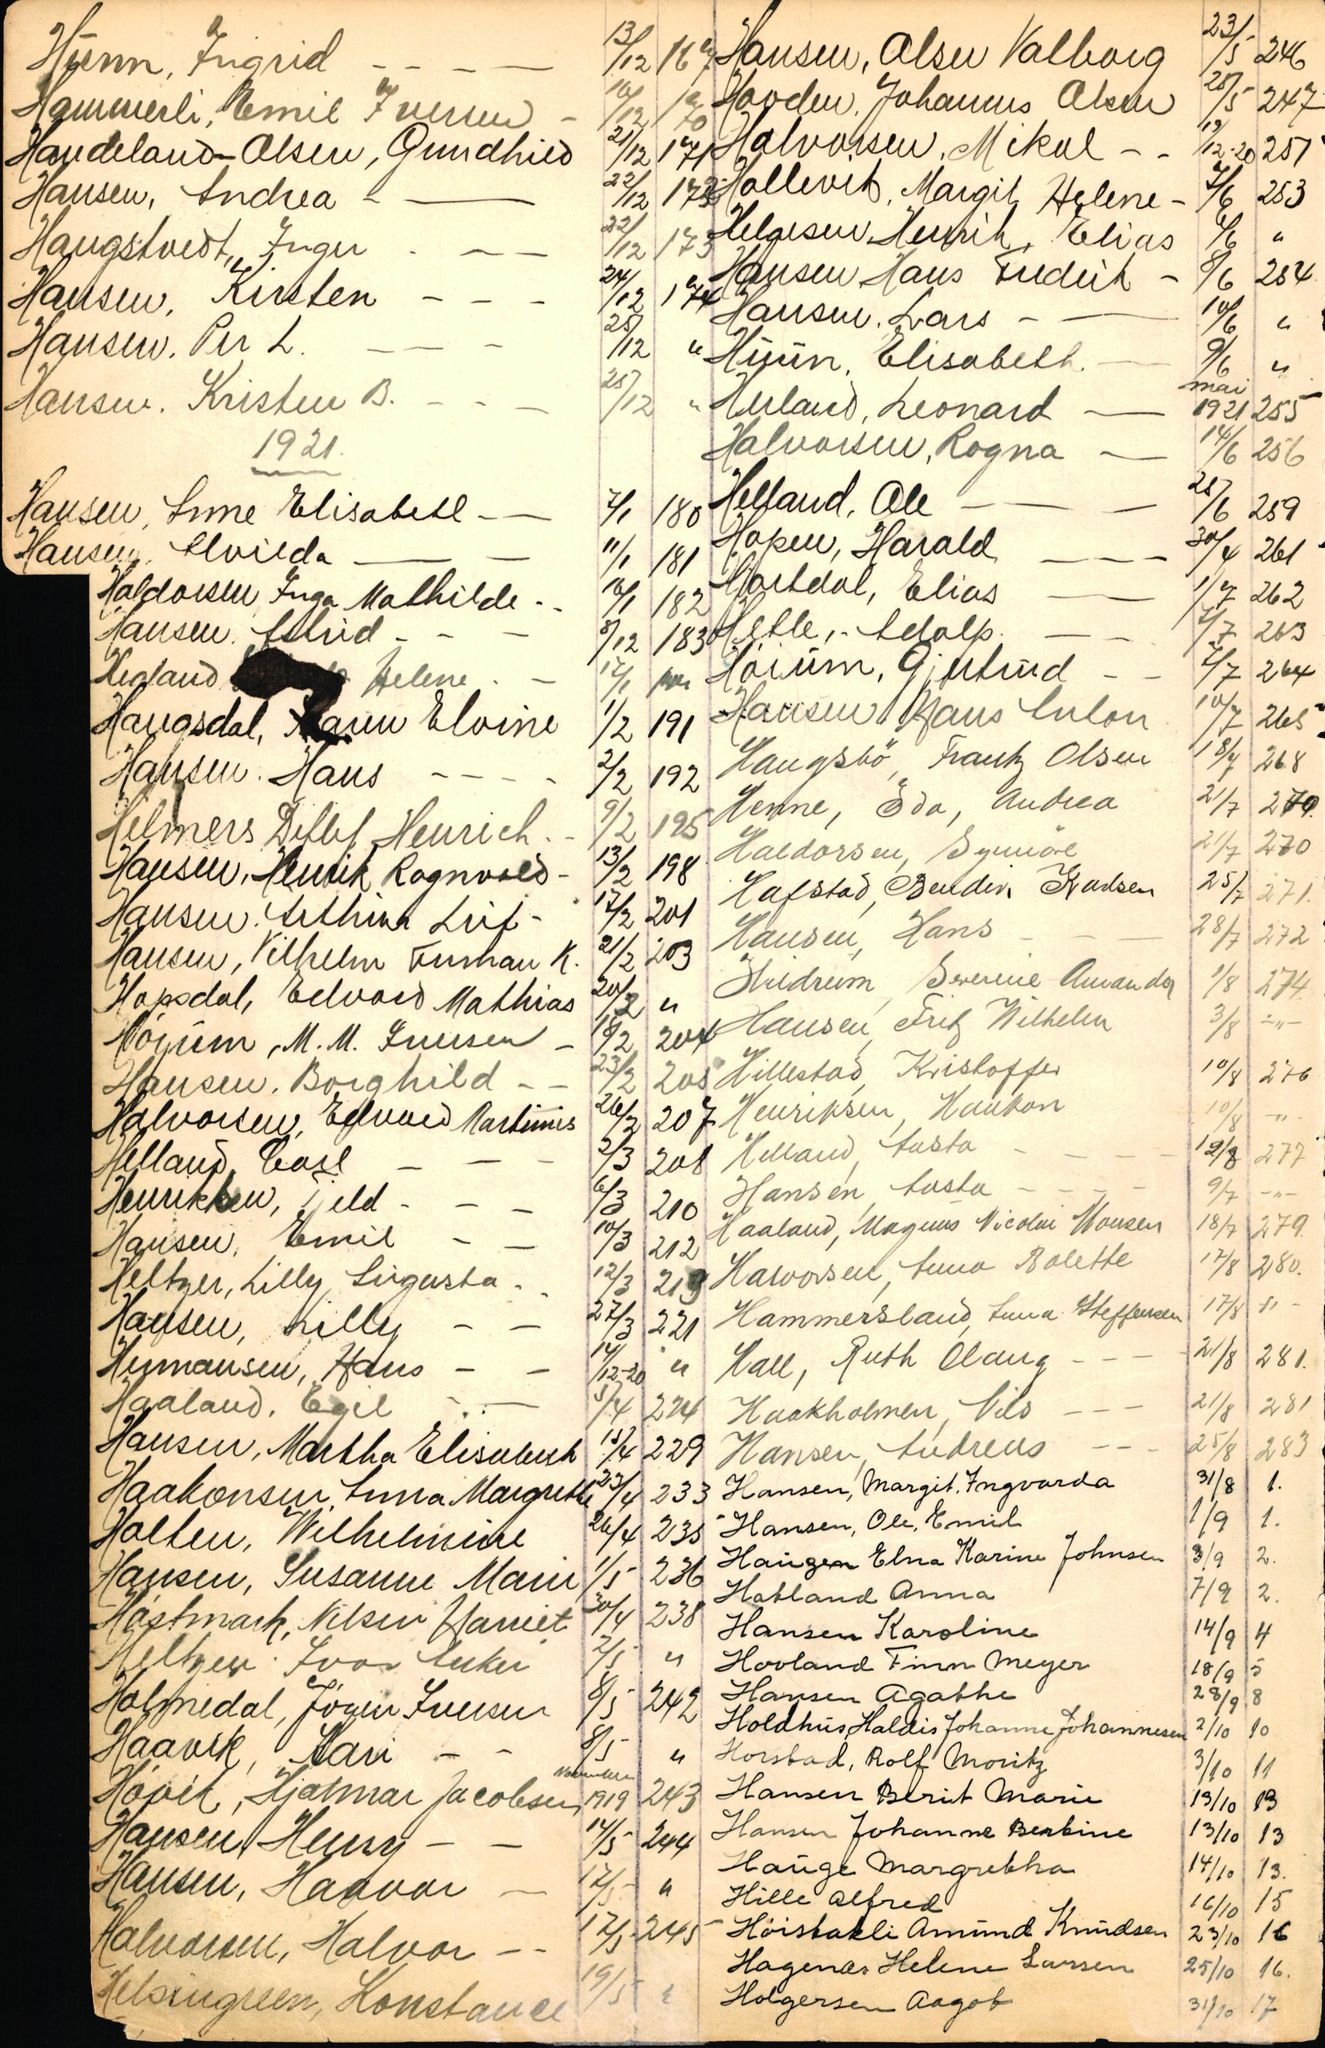 Hünn, Ingrid - - - - 13/12 169
Hammerli, Emil Iversen - 16/12 170
Haudeland-Olsen, Gundhild 21/12 171
Hansen, Andrea - — 22/12 173
Haugstvedt, Inger - - - 22/12 173
Hansen, Kirsten - - - 24/12 174
Hansen, Per L. - - - - 25/12 "
Hansen, Kristen B. - - - 25/12 "
1921.
Hansen, Anne Elisabeth - — 7/1 180
Hansen, Alvilda — - 11/1 181
Haldorsen Inga Mathilde - - 16/1 182
Hansen, Astrid - - - 8/12 183
Hegland Helene - - 17/1
Haugsdal, Karen Elvine 1/2 191
Hansen, Hans - - - - 2/2 192
Helmers Detlef Henrich - - 9/2 195
Hansen, Henrik Ragnvald - 13/2 198
Hansen, Arthur Leif - 17/2 201
Hansen, Vilhelm K. 21/2 203
Hopsdal, Edvard Mathias 20/2 "
Höjum, M. M. Iversen - 18/2 204
Hansen, Borghild - - 23/2 205
Halvorsen, Edvard Martinius 26/2 207
Helland, Carl - - - 2/3 208
Henrikken, - - - 6/3 210
Hansen, Emil - - 10/3 212
Heltzer, Lilly Augusta - - 12/3 213
Hansen, Lilly - - 27/3 221
Hermansen, Hans - - 14/12-20 "
Haaland, Egil - - 5/4 224
Hansen, Martha Elisabeth 15/4 229
Haakonsen, Anna Margrethe 23/4 233
Holten, Wilhelmine 26/4 235
Hansen, Susanne Marie 1/5 236
Høstmark, Nilsen Harriet 30/4 238
Heltzer Ivar Anker 2/5 "
Holmedal, Jörgen Iversen 8/5 242
Haavik, Kari - - 8/5 "
Høvik, Hjalmar Jacobsen November 1919 243
Hansen, Henry - - 14/5 244
Hansen, Haavar - 17/5 "
Halvorsen, Halvor - - 17/5 245
Helsingreen, Konstance 19/5 "
Hansen, Olsen Valborg 23/5 246
Hovden, Johannes Olsen 25/5 247
Halvorsen, Mikal - - 19/12-20 251
Hollevik, Margit Helene - 7/6 253
Helgesen Henrik, Elias 6/6 "
Hansen Hans Fredrik - 8/6 254
Hansen, Lars - — 10/6 "
Hüün, Elisabeth - — 9/6 "
Herland, Leonard — mai 1921 255
Halvorsen, Rogna — 14/6 256
Helland, Ole - — - 25/6 259
Hopen, Harald - - - 30/4 261
Hartdal, Elias — 1/7 262
Hetle, Adolp. - - 2/7 263
Höium, Gjertrud - - 2/7 264
Hansen Hans Anton 10/7 265
Haugsbö, Frantz Olsen 18/7 268
Henne, Eda, Andrea 21/7 270.
Haldorsen, Synnöve 21/7 270
Hafstad, Bendix Knudsen 25/7 271.
Hansen, Hans - — 28/7 272
Hildrum, Severine Amanda 1/8 274.
Hansen, Fritz Wilhelm 3/8 -"-
Hillestad, Kristoffer 10/8 276
Henriksen, Haakon 10/8 -"-
Helland, Aasta - - - - 12/8 277
Hansen, Aasta - - - - 9/7 -"-
Haaland, Magnus Nicolai Monsen 18/7 279.
Halvorsen, Anna Bolette 17/8 280.
Hammersland, Anna Steffensen 17/8 "-
Hall, Ruth Olaug - - - 21/8 281.
Kaakholmen, Nils - - - 21/8 281
Hansen, Andreas - - - 25/8 283
Hansen, Margit. Ingvarda 31/8 1.
Hansen, Ole, Emil 1/9 1.
Haugen Elna Karine Johnsen 3/9 2.
Hatland Anna 7/9 2.
Hansen Karoline 14/9 4
Hovland Finn Meyer 18/9 5
Hansen Agathe 28/9 8
Holdhus, Haldis Johanne Johannesen 2/10 10
Horstad, Rolf Moritz 3/10 11
Hansen Berit Marie 13/10 13
Hansen Johanne Bertine 13/10 13
Hauge Margretha 14/10 13.
Hille Alfred 16/10 15
Höistakli Amund Knudsen 23/10 16
Hagenæs Helene Larsen 25/10 16.
Holgersen Aagot 31/10 17